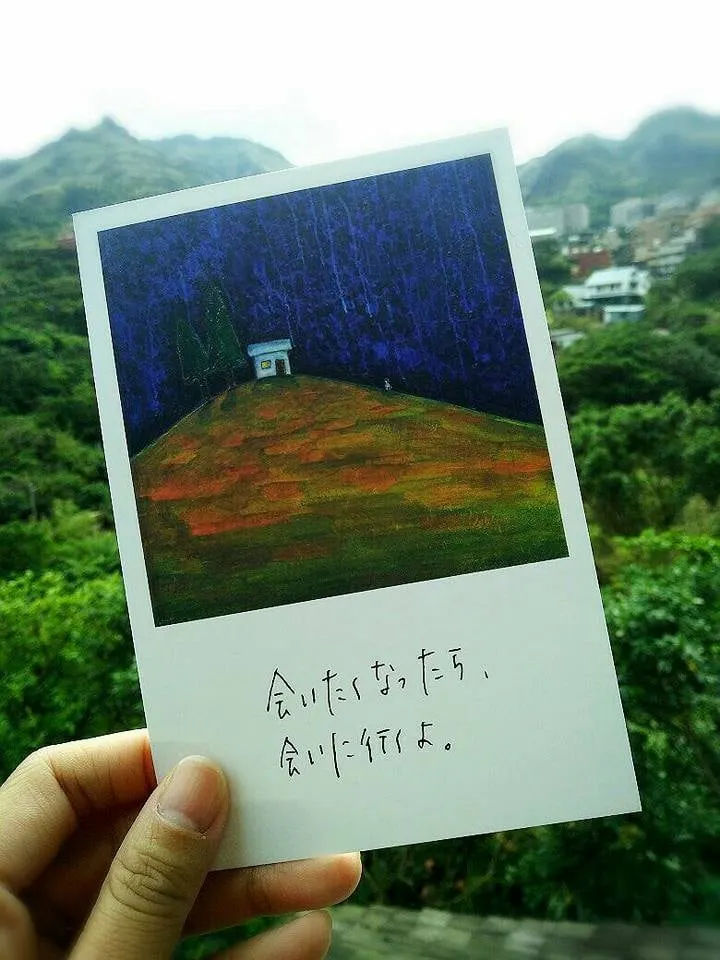 会いたくなったら、
会いに行くよ。